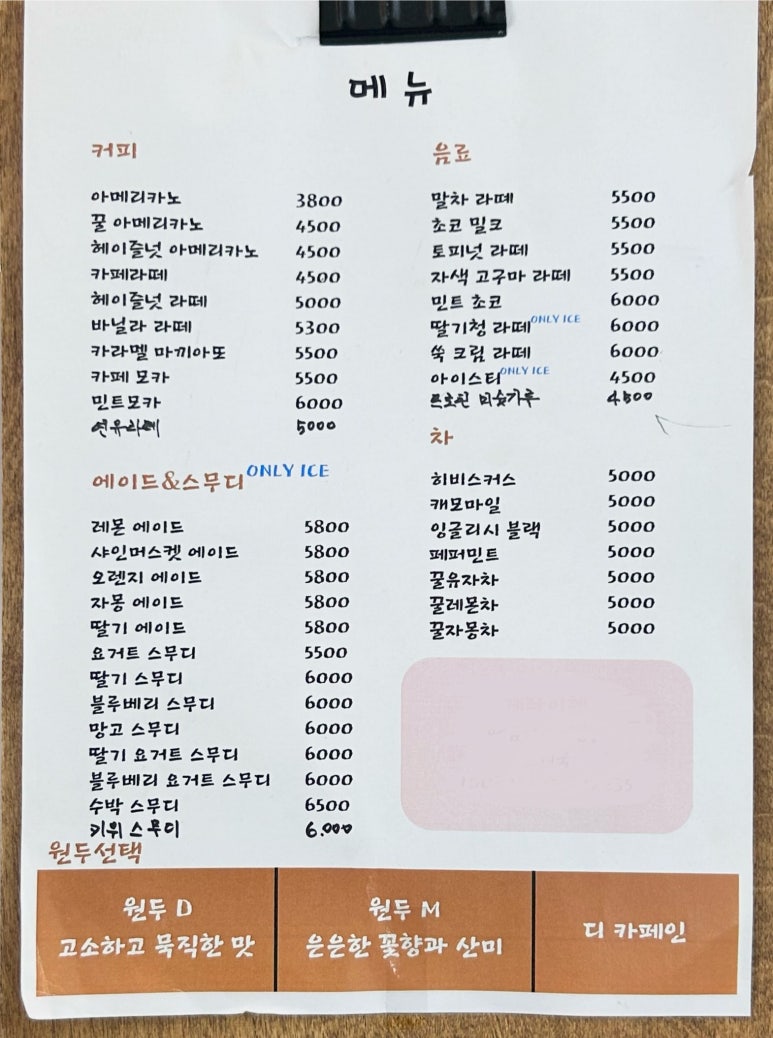 메뉴
커피
아메리카노 3800
꿀 아메리카노 4500
헤이즐넛 아메리카노 4500
카페라떼 4500
헤이즐넛 라떼 5000
바닐라 라떼 5300
카라멜 마끼아또 5500
카페 모카 5500
민트모카 6000
연유라떼 5000
에이드&스무디 ONLY ICE
레몬 에이드 5800
샤인머스켓 에이드 5800
오렌지 에이드 5800
자몽 에이드 5800
딸기 에이드 5800
요거트 스무디 5500
딸기 스무디 6000
블루베리 스무디 6000
망고 스무디 6000
딸기 요거트 스무디 6000
블루베리 요거트 스무디 6000
수박 스무디 6500
키위 스무디 6.000
음료
말차 라떼 5500
초코 밀크 5500
토피넛 라떼 5500
자색 고구마 라떼 5500
민트 초코 6000
딸기청 라떼 ONLY ICE 6000
쑥 크림 라떼 6000
아이스티 ONLY ICE 4500
미숫가루 4500
차
히비스커스 5000
캐모마일 5000
잉글리시 블랙 5000
페퍼민트 5000
꿀유자차 5000
꿀레몬차 5000
꿀자몽차 5000
원두선택
원두 D
고소하고 묵직한 맛
원두 M
은은한 꽃향과 산미
디 카페인